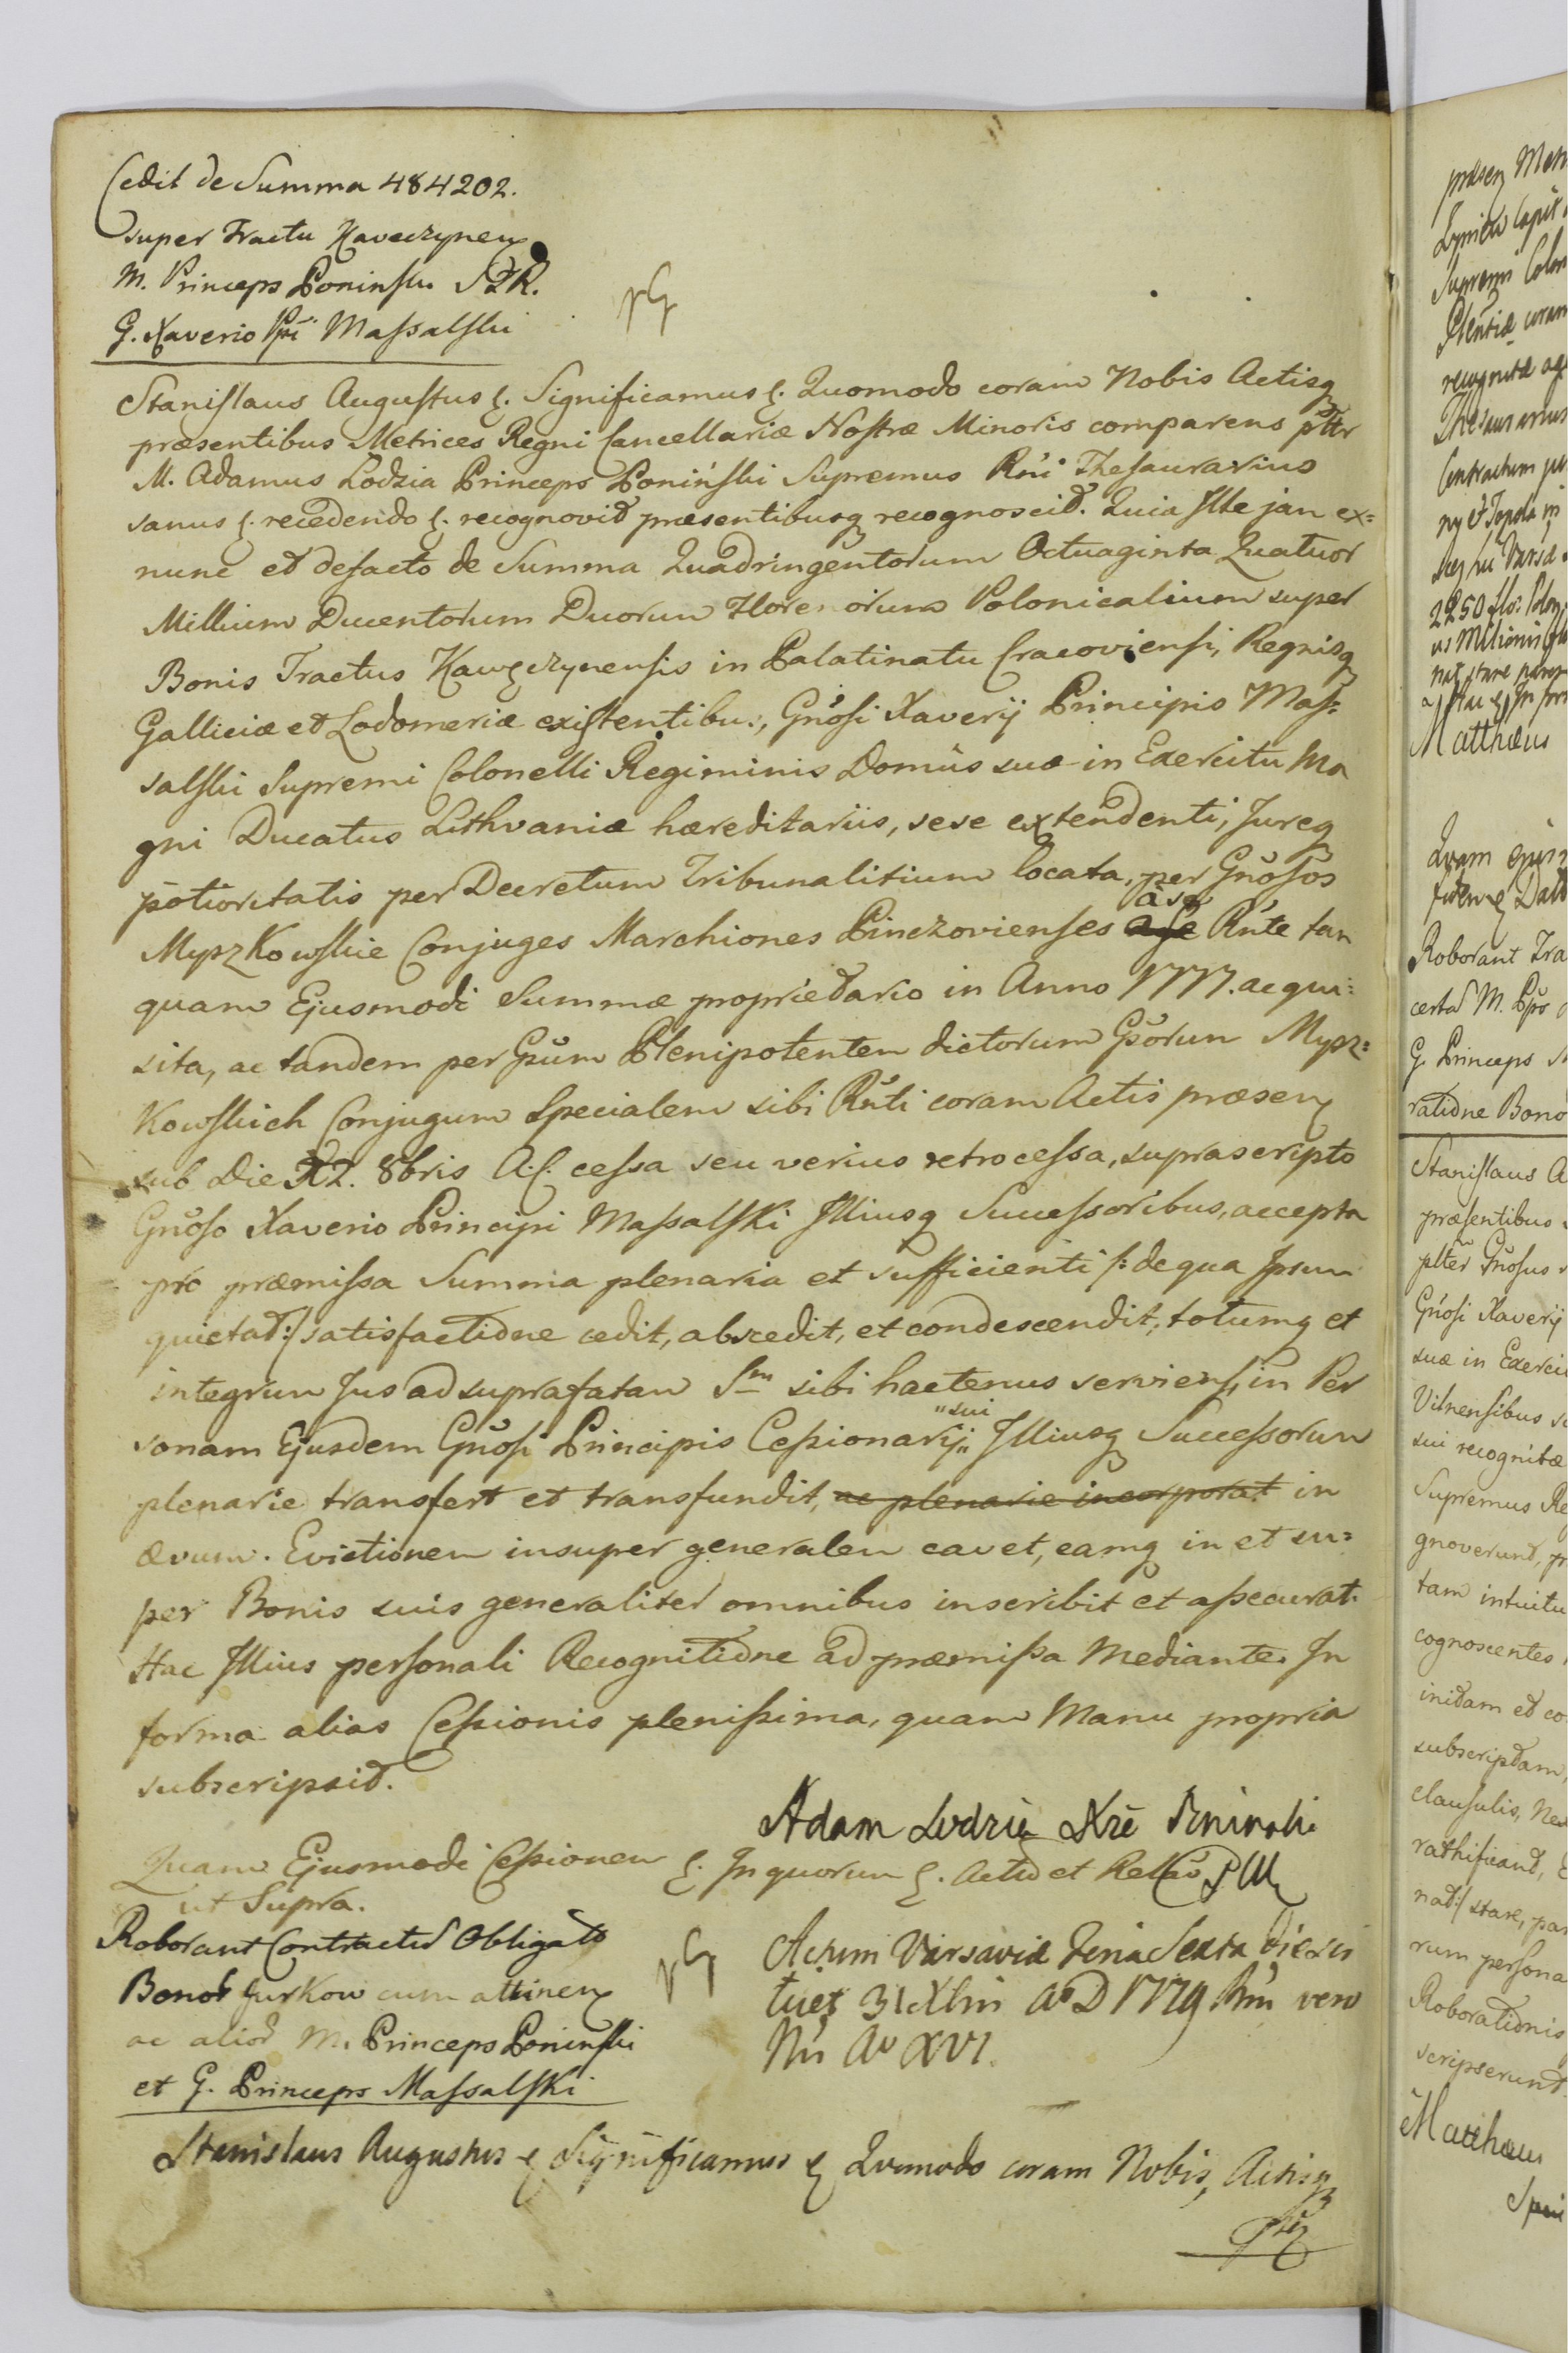 Cedit de Summa 484202.
super Tractu Kaweczynen
M. Princeps Poninski S.T.R.
G. Xaverio Ppi Massalski
Stanislaus Augustus &. Significamus &. Quomodo coram Nobis Actisq
præsentibus Metrices Regni Cancellariæ Nostræ Minoris comparens pltr
M. Adamus Lodzia Princeps Poniński Supremus Rńi Thesaurarius
sanus &. recedendo &. recognovit præsentibusq recognoscit. Quia Ille jam ex=
nunc et defacto de Summa Quadringentorum Octuaginta Quatuor
Millium Ducentorum Duorum Florenorum Polonicalium super
Bonis Tractus Kawęczynensis in Palatinatu Cracoviensi, Regnisq
Galliciæ et Lodomeriæ existentibus, Gnosi Xaverij Principis Mas=
salski Supremi Colonelli Regiminis Domûs suæ in Exercitu Ma
gni Ducatus Lithvaniæ hæreditariis, sese extendenti, Jureq
potioritatis per Decretum Tribunalitium locata, per Gnosos
Myszkowskie Conjuges Marchiones Pinczovienses a se Rńte tan
quam Ejusmodi Summæ proprietario in Anno 1777. acqui=
sita, ac tandem per Gsum Plenipotentem dictorum Gsorum Mysz=
kowskich Conjugum Specialem sibi Rńti coram Actis præsen
sub Die 22. 8bris A. C. cessa seu verius retrocessa, suprascripto
Gnoso Xaverio Principi Massalski Illiusq Successoribus, accepta
pro præmissa Summa plenaria et sufficienti /: de qua Ipsum
quietat :/ satisfactione cedit, abscedit, et condescendit, totumq et
integrum Jus ad suprafatam Sm sibi hactenus serviens, in Per
sonam Ejusdem Gnosi Principis Cessionarij "sui" Illiusq Successorum
plenarie transfert et transfundit, ac plenarie incorporat in
ævum. Evictionem insuper generalem cavet, eamq in et su=
per Bonis suis generaliter omnibus inscribit et assecurat.
Hac Illius personali Recognitione ad præmissa Mediante. In
forma alias Cessionis plenissima, quam Manu propria
subscripsit.
Adam Lodzia Xże Poninski
Quam Ejusmodi Cessionem &. In quorum &. Actu et Rel
ut Supra.
Roborant Contractus Obligato
Bonor Jurkow cum attinen
ac alior M. Princeps Poninski
et G. Princeps Massalski
Actum Varsaviæ Feria Sexta die
31 Xbris AoD 1779 Rńi vero
Nri Ao XVI.
Stanislaus Augustus & Significamus & Quomodo coram Nobis, Actisq

præsen
Supremi Colon
Plentiæ coram
recognitæ
Contractum
2250 flo: Polon
Matthæus
Quam ejus
fidem & Dat
Roborant Tra
certas M. Pps
G. Princeps M
ratione Bono
Stanislaus A
præsentibus
plter Gnosus
Gnosi Xaverij
suæ in Exerci
Vilnensibus
sui recognitæ
Supremus Re
gnoverunt, p
tam intuitu
cognoscentes
initam et co
subscriptam,
clausulis, Nex
rathificant,
nat :/ stare, par
rum persona
Roborationis
scripserunt.
Matthæus